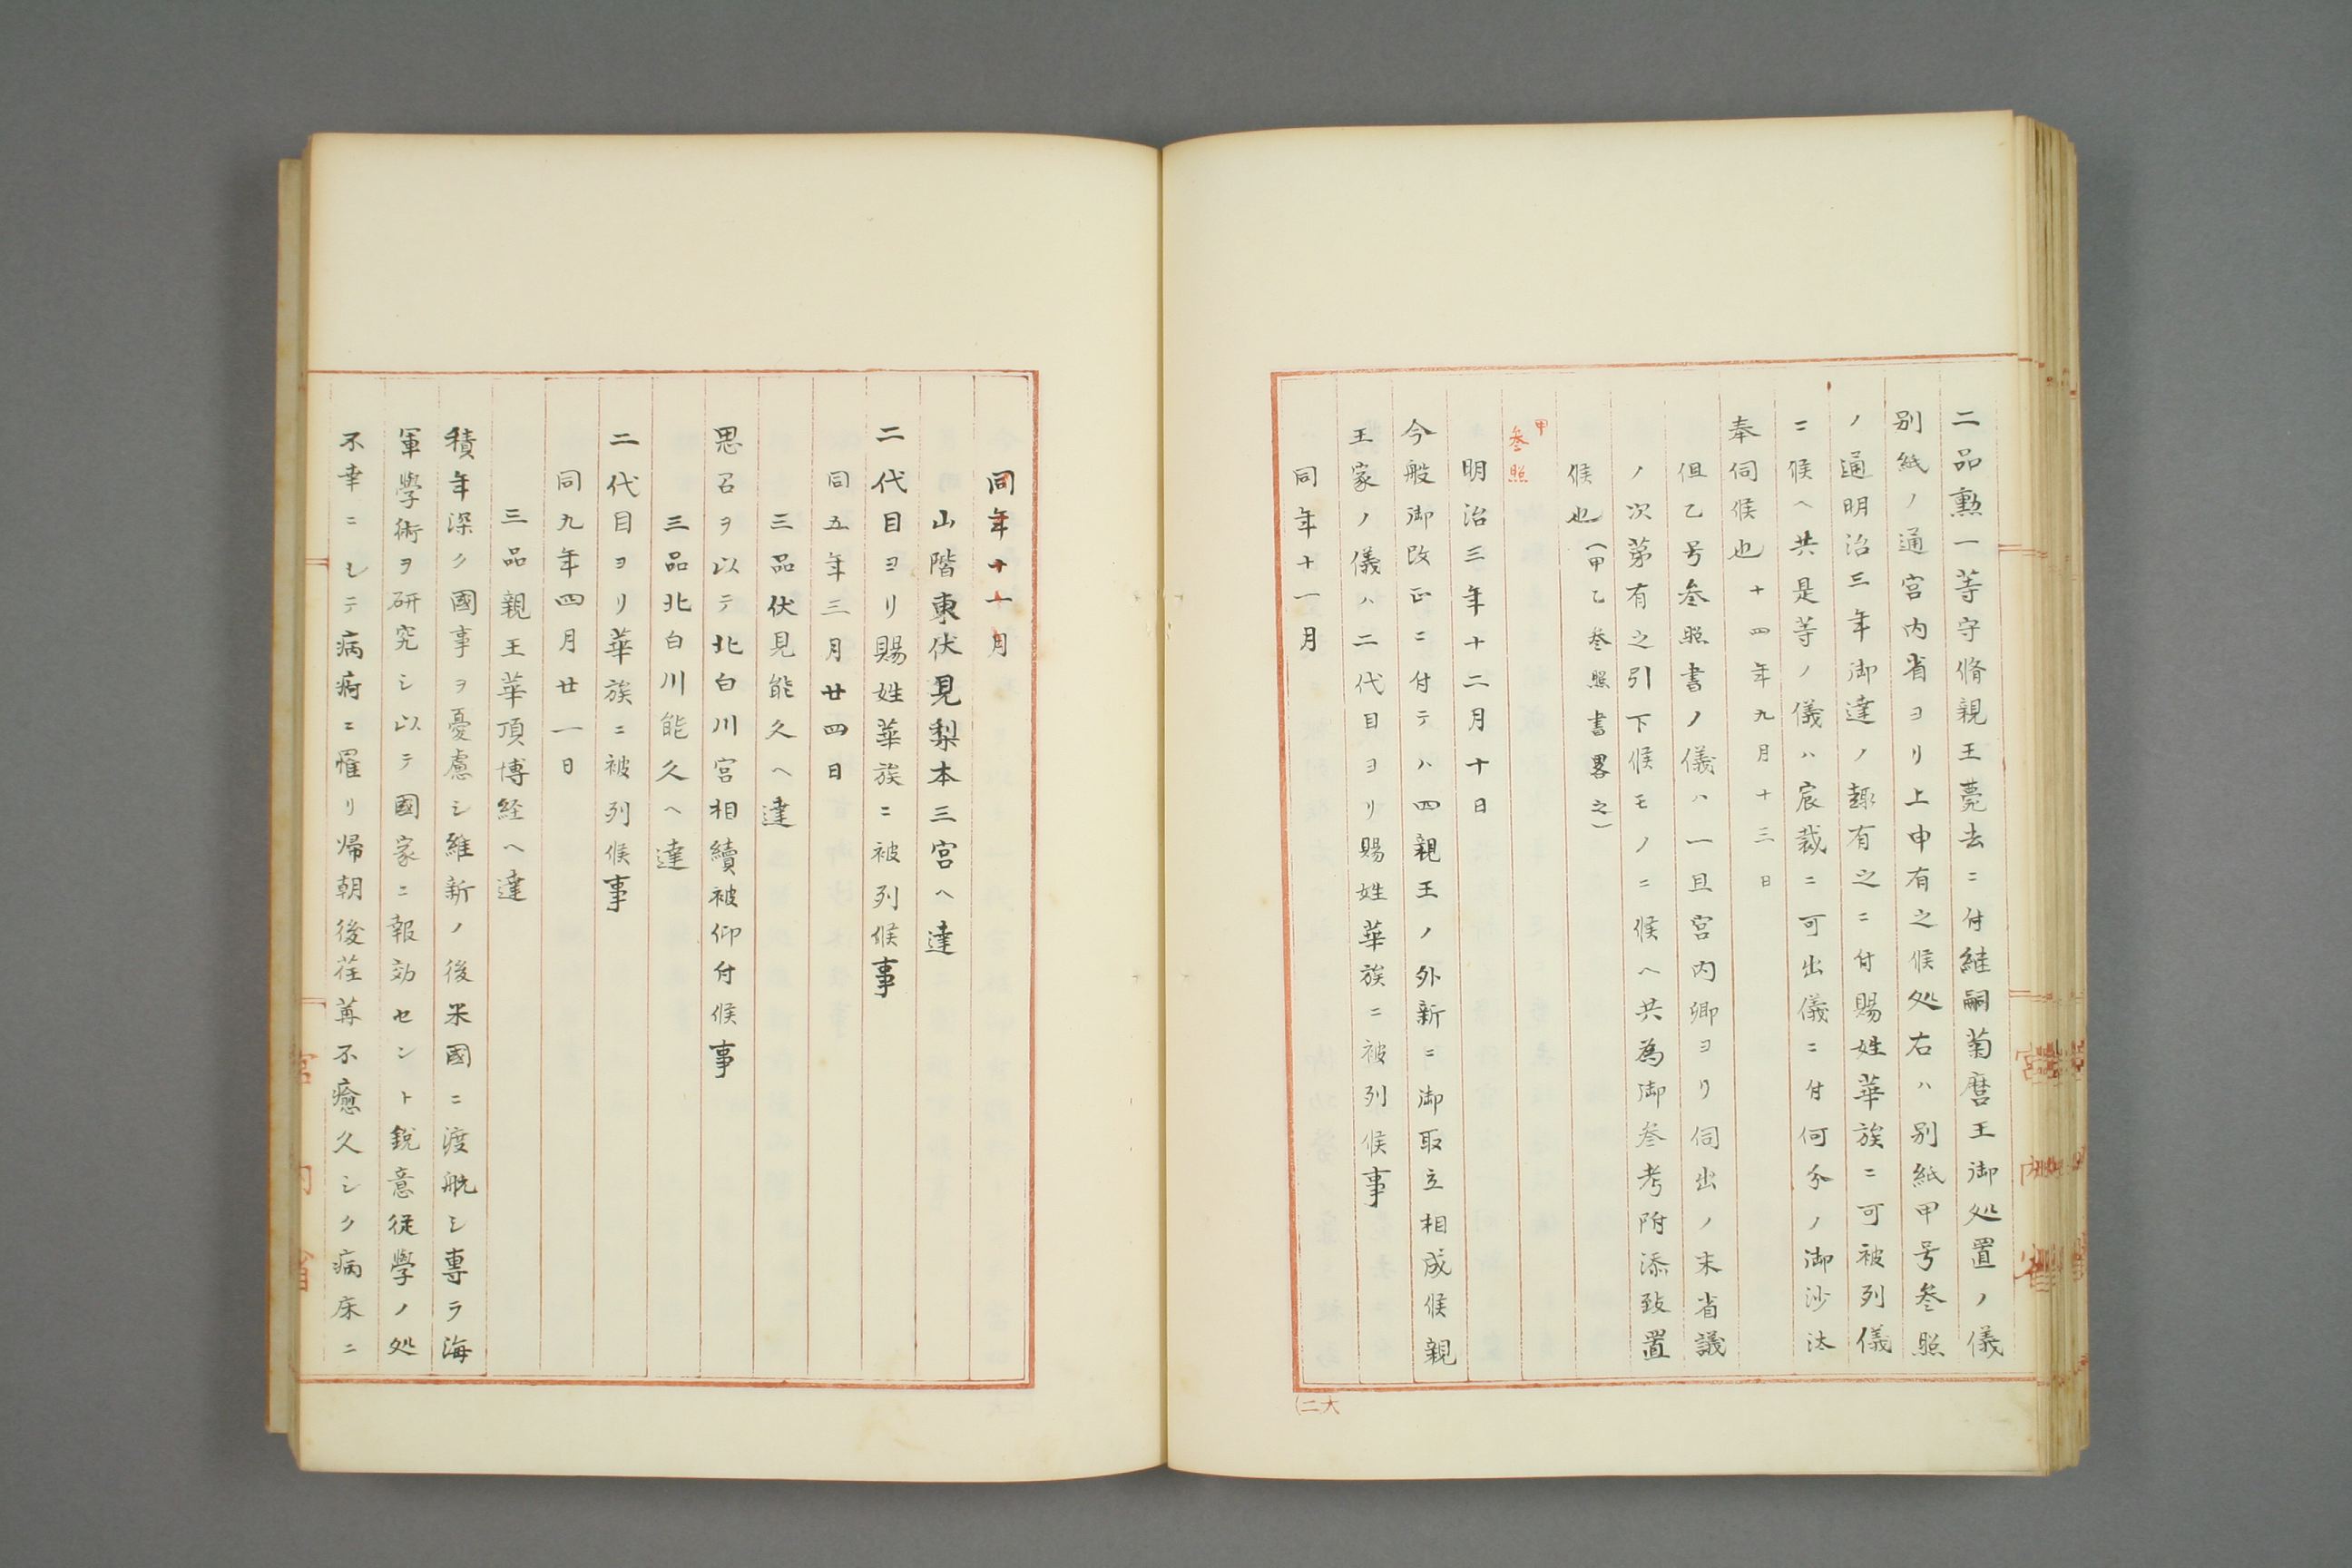 二品勲一等守脩親王薨去ニ付継嗣菊麿王御処置ノ儀
別紙ノ通宮内省ヨリ上申有之候処右ハ別紙甲号叅照
ノ通明治三年御達ノ趣有之ニ付賜姓華族ニ可被列儀
ニ候ヘ共是等ノ儀ハ宸裁ニ可出儀ニ付何分ノ御沙汰
奉伺候也 十四年九月十三日
但乙号叅照書ノ儀ハ一旦宮内卿ヨリ伺出ノ末省議
ノ次第有之引下候モノニ候ヘ共為御叅考附添致置
候也(甲乙叅照書畧之)
甲
叅照
明治三年十二月十日
今般御改正ニ付テハ四親王ノ外新ニ御取立相成候親
王家ノ儀ハ二代目ヨリ賜姓華族ニ被列候事
同年十一月
同年十一月
山階東伏見梨本三宮ヘ達
二代目ヨリ賜姓華族ニ被列候事
同五年三月廿四日
三品伏見能久ヘ達
思召ヲ以テ北白川宮相續被仰付候事
三品北白川能久ヘ達
二代目ヨリ華族ニ被列候事
同九年四月廿一日
三品親王華頂博経ヘ達
積年深ク國事ヲ憂慮シ維新ノ後米國ニ渡航シ專ラ海
軍學術ヲ研究シ以テ國家ニ報効セント鋭意従學ノ処
不幸ニシテ病痾ニ罹リ帰朝後荏苒不癒久シク病床ニ
宮内省